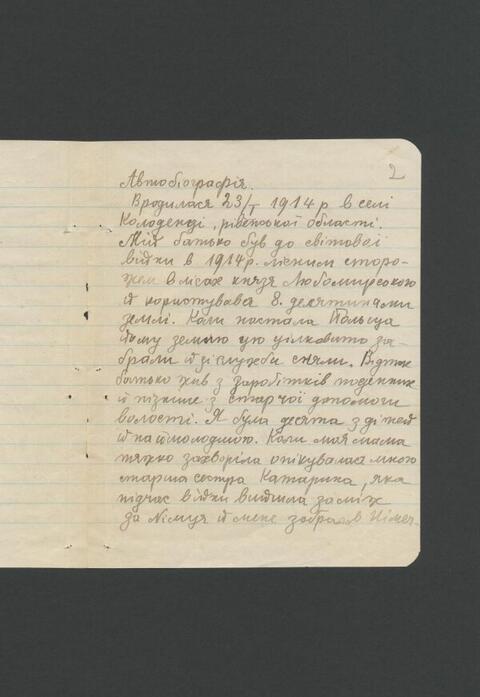 2
Автобіографія.
Вродилася 23/I 1914 р в селі
Колоденці, рівенської області.
Мій батько був до світової
війни в 1914 р. лісним сторо-
жем в лісах князя Любомирського
й користувався 8. десятинами
землі. Коли настала Польща
йому землю цю цілковито за-
брали й зі служби зняли. Відтак
батько жив з заробітків поденних
й пізніше з старчої допомоги
волості. Я була десята з дітей
й наймолодшою. Коли моя мама
тяжко захворіла опікувалася мною
старша сестра Катарина, яка
підчас війни вийшла заміж
за німця й мене забрала в Німеч